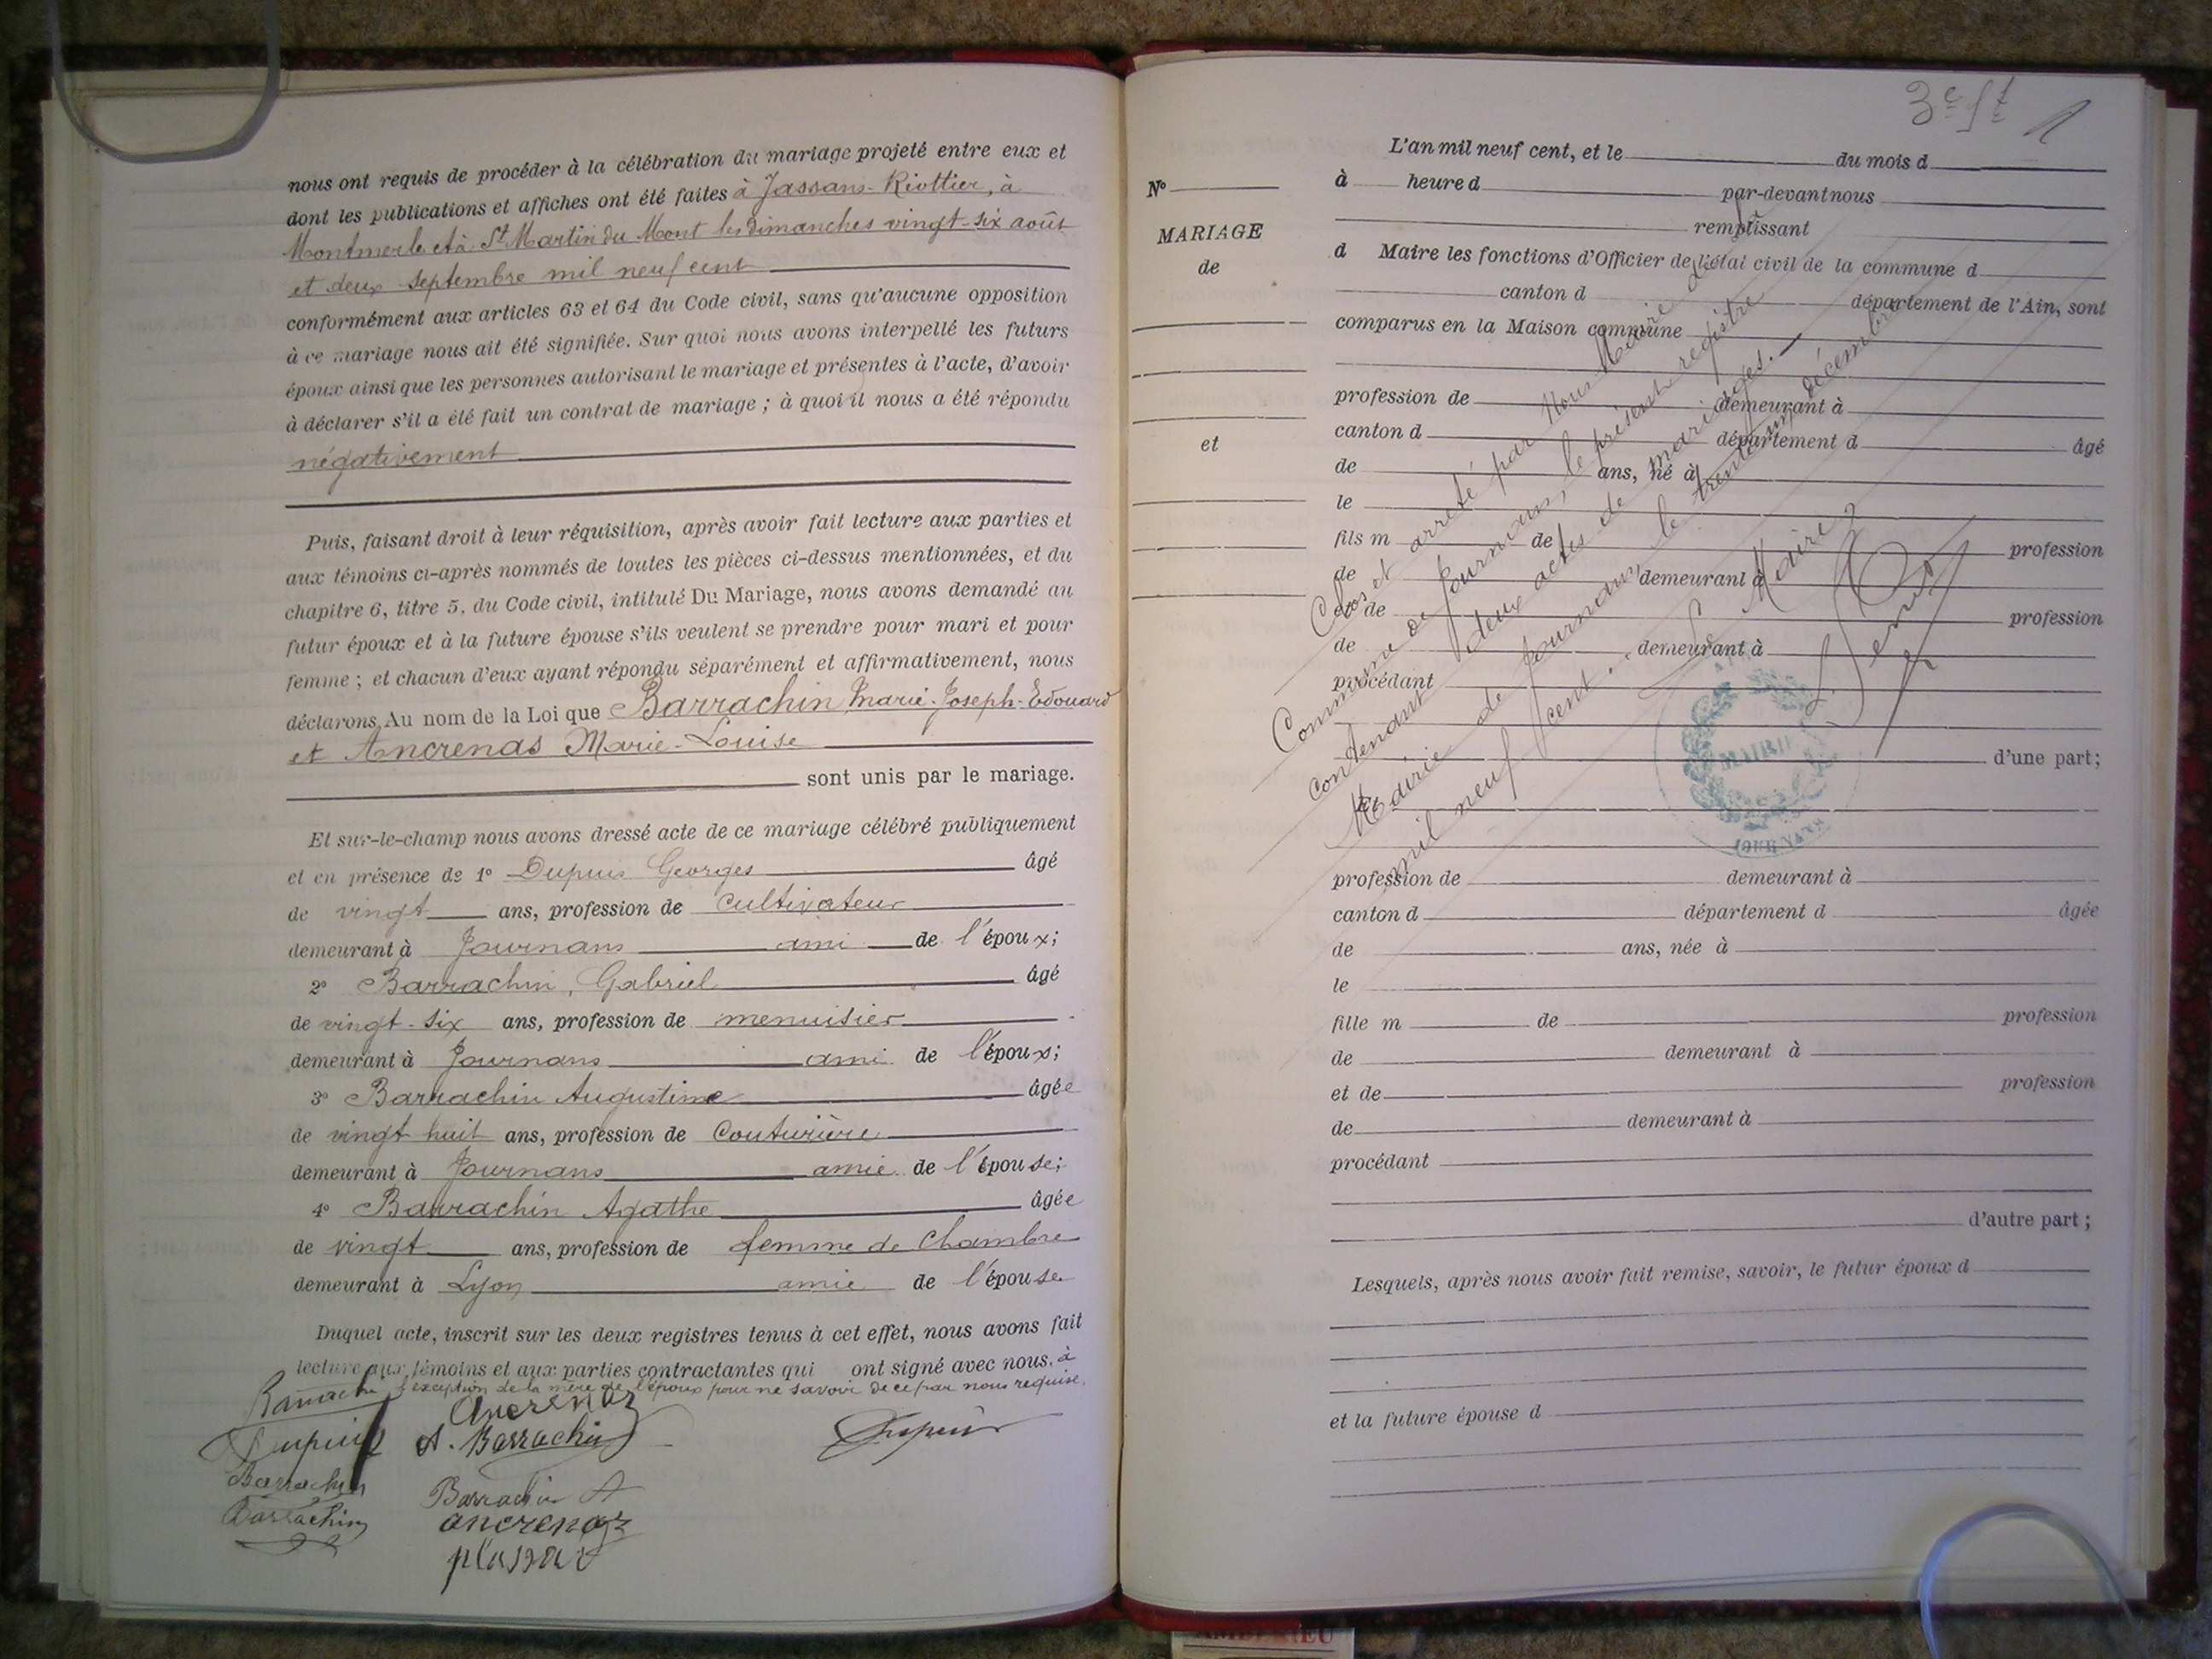 nous ont requis de procéder à la célébration du mariage projeté entre eux et
dont les publications et affiches ont été faites à Jassans-Riottier, à
Montmerle et à St Martin du Mont les dimanches vingt-six août
et deux septembre mil neuf cent
conformément aux articles 63 et 64 du Code civil, sans qu'aucune opposition
à ce mariage nous ait été signifiée. Sur quoi nous avons interpellé les futurs
époux ainsi que les personnes autorisant le mariage et présentes à l'acte, d'avoir
à déclarer s'il a été fait un contrat de mariage ; à quoi il nous a été répondu
négativement
Puis, faisant droit à leur réquisition, après avoir fait lecture aux parties et
aux témoins ci-après nommés de toutes les pièces ci-dessus mentionnées, et du
chapitre 6, titre 5, du Code civil, intitulé Du Mariage, nous avons demandé au
futur époux et à la future épouse s'ils veulent se prendre pour mari et pour
femme ; et chacun d'eux ayant répondu séparément et affirmativement, nous
déclarons, Au nom de la Loi que Barrachin Marie-Joseph-Edouard
et Ancrenas Marie-Louise
sont unis par le mariage.
Et sur-le-champ nous avons dressé acte de ce mariage célébré publiquement
et en présence de 1° Dupuis Georges âgé
de vingt ans, profession de cultivateur
demeurant à Journans ami de l'époux;
2° Barrachin, Gabriel âgé
de vingt-six ans, profession de menuisier
demeurant à Journans ami de l'époux;
3° Barrachin Augustine âgée
de vingt huit ans, profession de Couturière
demeurant à Journans amie de l'épouse;
4° Barrachin Agathe âgée
de vingt ans, profession de femme de Chambre
demeurant à Lyon amie de l'épouse
Duquel acte, inscrit sur les deux registres tenus à cet effet, nous avons fait
lecture aux témoins et aux parties contractantes qui ont signé avec nous, à
l'exception de la mère de l'époux pour ne savoir de ce par nous requise.
Ancrenaz
Dupuis A. Barrachin Dupuis
Barrachin Barrachin A
Barrachin ancrenaz
3e ft 1
L'an mil neuf cent, et le du mois d
N° à heure d par-devant nous
MARIAGE remplissant
de d Maire les fonctions d'Officier de l'état civil de la commune d
canton d département de l'Ain, sont
comparus en la Maison commune
profession de demeurant à
et canton d département d âgé
de ans, né à
le
fils m de profession
de demeurant à
et de profession
de demeurant à
procédant
d'une part;
Et
profession de demeurant à
canton d département d âgée
de ans, née à
le
fille m de profession
de demeurant à
et de profession
de demeurant à
procédant
d'autre part ;
Lesquels, après nous avoir fait remise, savoir, le futur époux d
et la future épouse d
Clos et arrêté par Nous Maire de la
Commune de Journans, le présent registre
contenant deux actes de mariages.
Mairie de Journans le trente un décembre
mil neuf cent.
Le Maire
MAIRIE
JOURNANS